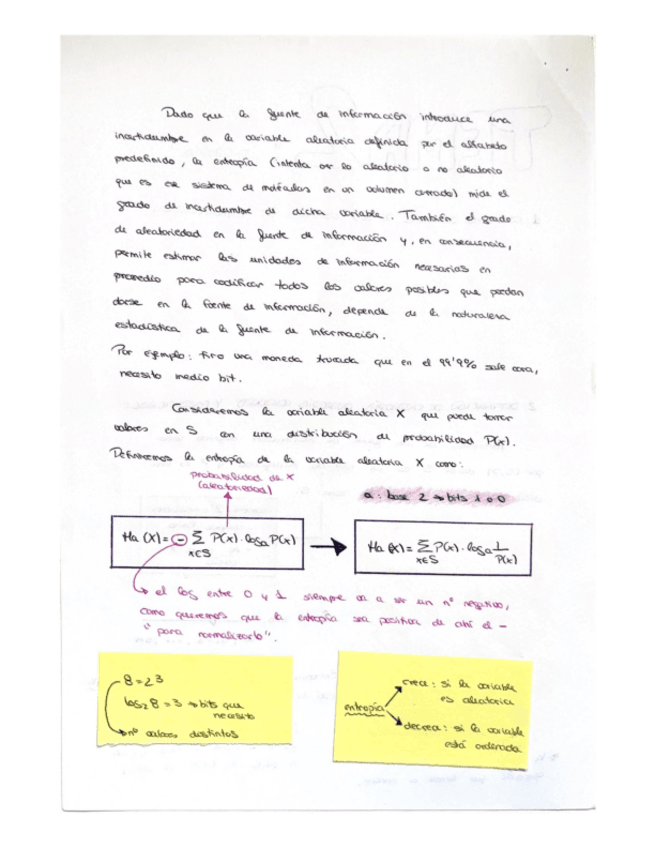 Dado que la fuente de información introduce una
incertidumbre en la variable aleatoria definida por el alfabeto
predefinido, la entropía (intenta ver lo aleatorio o no aleatorio
que es ese sistema de moléculas en un volumen cerrado) mide el
grado de incertidumbre de dicha variable. También el grado
de aleatoriedad en la fuente de información y, en consecuencia,
permite estimar las unidades de información necesarias en
promedio para codificar todos los valores posibles que puedan
darse en la fuente de información, depende de la naturaleza
estadística de la fuente de información.
Por ejemplo: tiro una moneda trucada que en el 99'9% sale cara,
necesito medio bit.
Consideremos la variable aleatoria X que puede tomar
valores en S con una distribución de probabilidad P(x).
Definiremos la entropía de la variable aleatoria X como:
probabilidad de x
(aleatoriedad)
a: base 2 → bits 1 o 0
Ha (X) = - Σ P(x) · loga P(x)
x∈S
Ha (X) = Σ P(x) · loga 1/P(x)
x∈S
el log entre 0 y 1 siempre va a ser un nº negativo,
como queremos que la entropía sea positiva de ahí el -
"para normalizarlo".
8 = 2 3
log2 8 = 3 → bits que
necesito
nº valores distintos
entropía
crece: si la variable
es aleatoria
decrece: si la variable
está ordenada